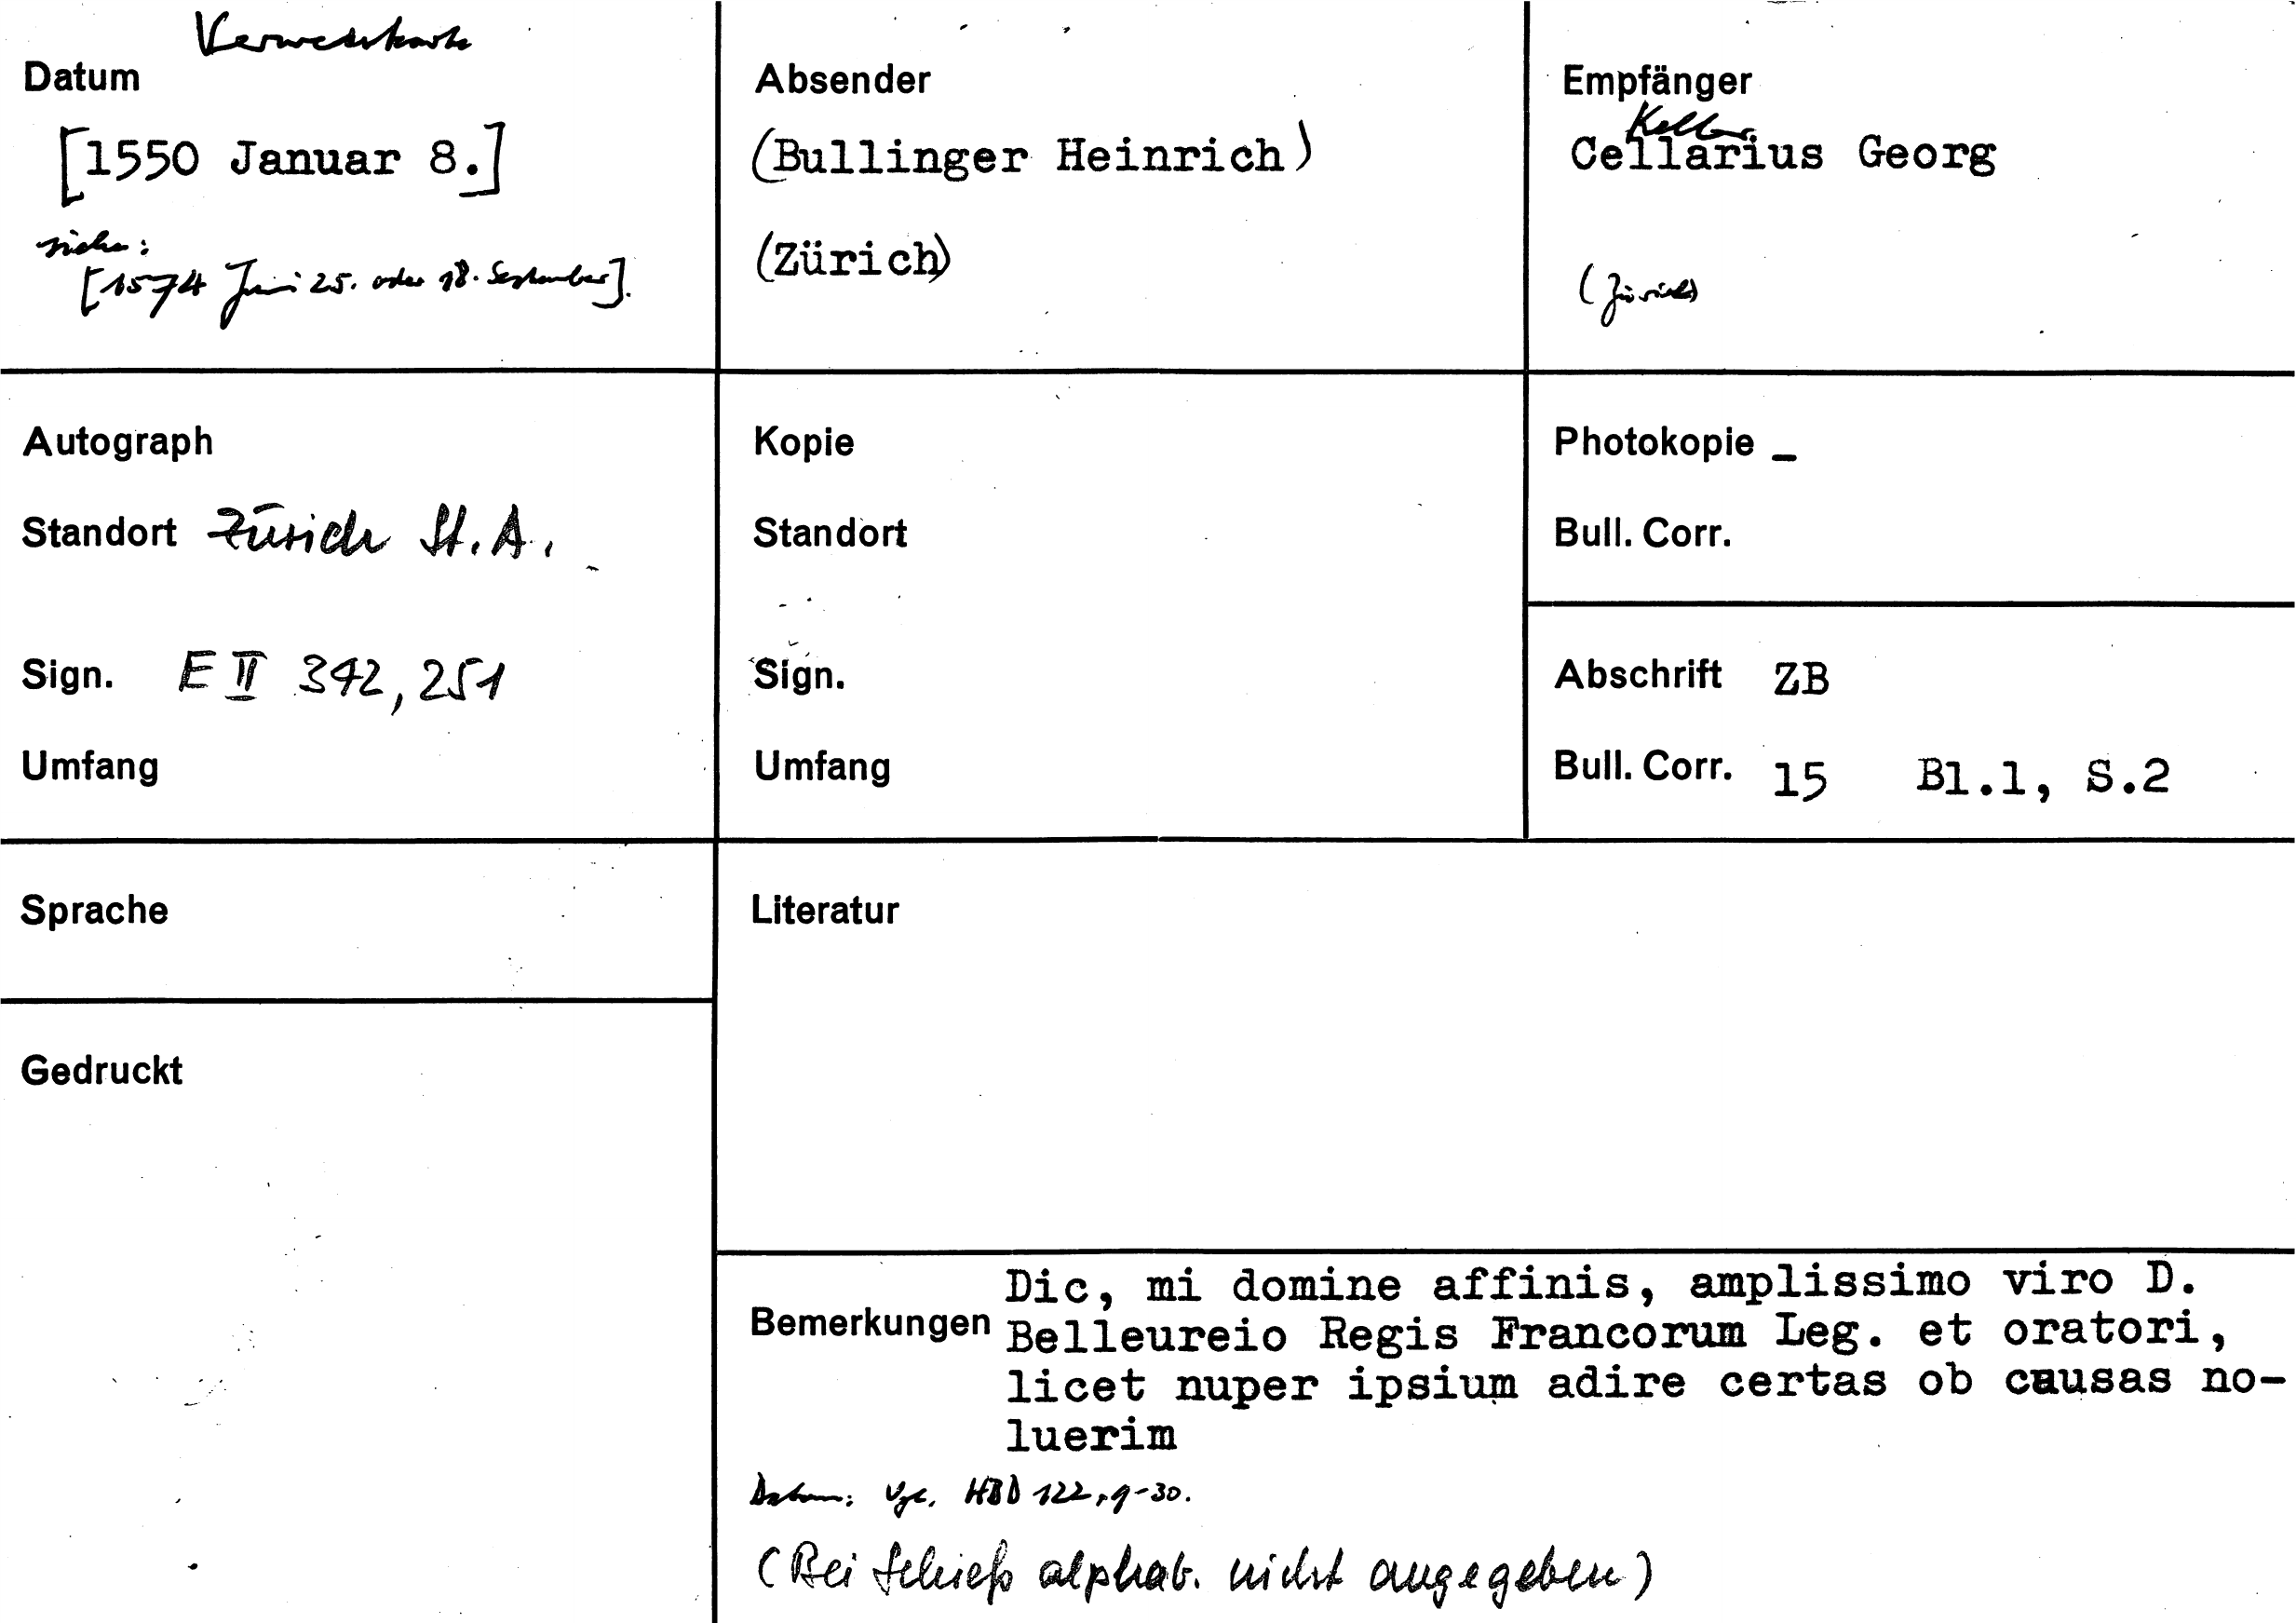 Verweiskarte
Datum
[1550 Januar 8.]
siehe:
[1574 Juni 25. oder 18. September].
Absender
(Bullinger Heinrich)
(Zürich)
Empfänger
Keller
Cellarius Georg
(Zürich)
Autograph
Standort Zürich St.A.
Sign. E II 342, 251
Umfang
Kopie
Standort
Sign.
Umfang
Photokopie –
Bull. Corr.
Abschrift ZB
Bull. Corr. 15 Bl.1, S.2
Sprache
Gedruckt
Literatur
Bemerkungen
Dic, mi domine affinis, amplissimo viro D.
Belleureio Regis Francorum Leg. et oratori,
licet nuper ipsium adire certas ob causas no-
luerim
Datum: Vgl. HBD 122, 9-30.
(Bei Schieß alphab. nicht angegeben)